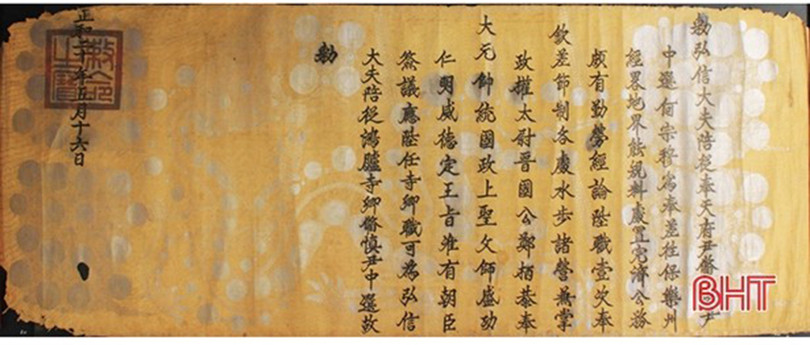 敕弘信大夫陪從奉天府尹脩慎尹
中選何宗穆爲奉差往保樂州
經略地界能規料處置完濟公務
頗有勤勞經論陞職壹次奉
欽差節制各處水步諸營兼掌
政權太尉晉國公鄭栢恭奉
大元帥統國政上聖父師盛功
仁明威德定王旨准有朝臣
僉議應陞任寺卿職可爲弘信
大夫陪從鴻臚寺卿脩慎尹中選故
敕
正和二十年五月十六日
敕命之寶
BHT